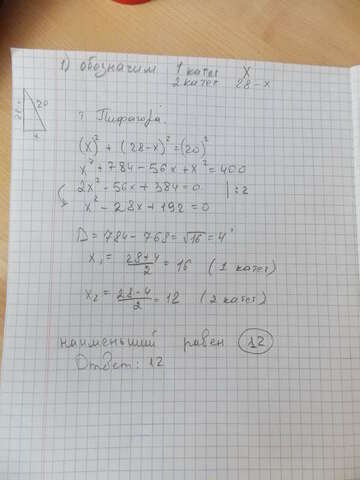 1) обозначим 1 катет x
2 катет 28-x
20
x
т. Пифагора.
(x)² + (28-x)² = (20)²
x² + 784 - 56x + x² = 400
2x² - 56x + 384 = 0 | : 2
x² - 28x + 192 = 0
D = 784 - 768 = √16 = 4
x₁ = (28+4)/2 = 16 (1 катет)
x₂ = (28-4)/2 = 12 (2 катет)
наименьший равен 12
Ответ: 12